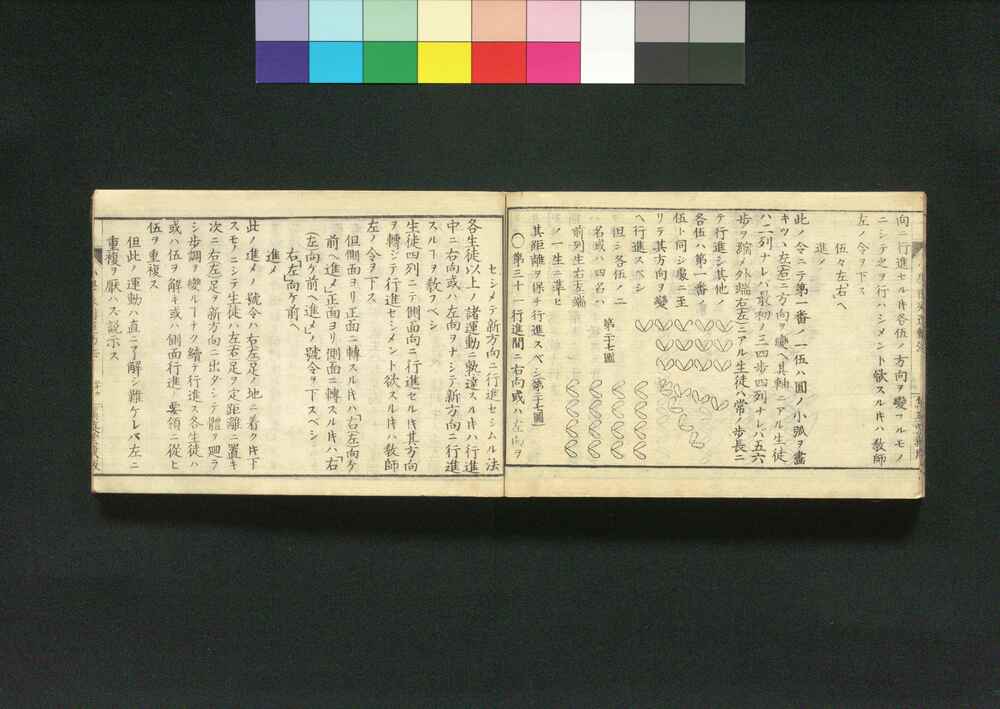 向ニ行進セル𪜈各伍ノ方向ヲ變スルモノ
ニシテ之ヲ行ハシメント欲スル𪜈ハ敎師
左ノ令ヲ下ス
伍々左「右」ヘ
進メ
此ノ令ニテ第一番ノ一伍ハ圓ノ小弧ヲ畫
キツヽ左「右」ニ方向ヲ變ヘ其軸ニアル生徒
ハ二列ナレハ最初ノ三四歩四列ナレバ五六
歩ヲ縮メ外端右「左」ニアル生徒ハ常ノ歩長ニ
テ行進シ其他ノ
各伍ハ第一番ノ
伍ト同シ處ニ至
リテ其方向ヲ變
ヘ行進スベシ
但シ各伍ノ二
名或ハ四名ハ
前列生右左端
ノ一生ニ準ヒ
其距離ヲ保チ行進スベシ第二十七圖
第二十七圖
〇第三十一行進間ニ右向或ハ左向ヲ
セシメテ新方向ニ行進セシムル法
各生徒以上ノ諸運動ニ軌達スル𪜈ハ行進
中ニ右向或ハ左向ヲナシテ新方向ニ行進
スルヿヲ敎フベシ
生徒四列ニテ側面向ニ行進セル𪜈其方向
ヲ轉シテ行進セシメント欲スル𪜈ハ敎師
左ノ令ヲ下ス
但側面ヨリ正面ニ轉スル𪜈ハ「右」左向ケ
前ヘ進メ」正面ヨリ側面ニ轉スル𪜈ハ「右」
(左)向ケ前ヘ進メ」ノ號令ヲ下スベシ
右「左」向ケ前ヘ
進メ
此ノ進メノ號令ハ右左足ノ地ニ着ク𪜈下
スモノニシテ生徒ハ左右足ヲ定距離ニ置キ
次ニ右左足ヲ新方向ニ出タシテ體ヲ廻ラ
シ歩調ヲ變ルヿナク續テ行進ス各生徒ハ
或ハ伍ヲ解キ或ハ側面行進ノ要領ニ從ヒ
伍ヲ重複ス
但此ノ運動ハ直ニ了解シ難ケレバ左ニ
重複ヲ厭ハス説示ス